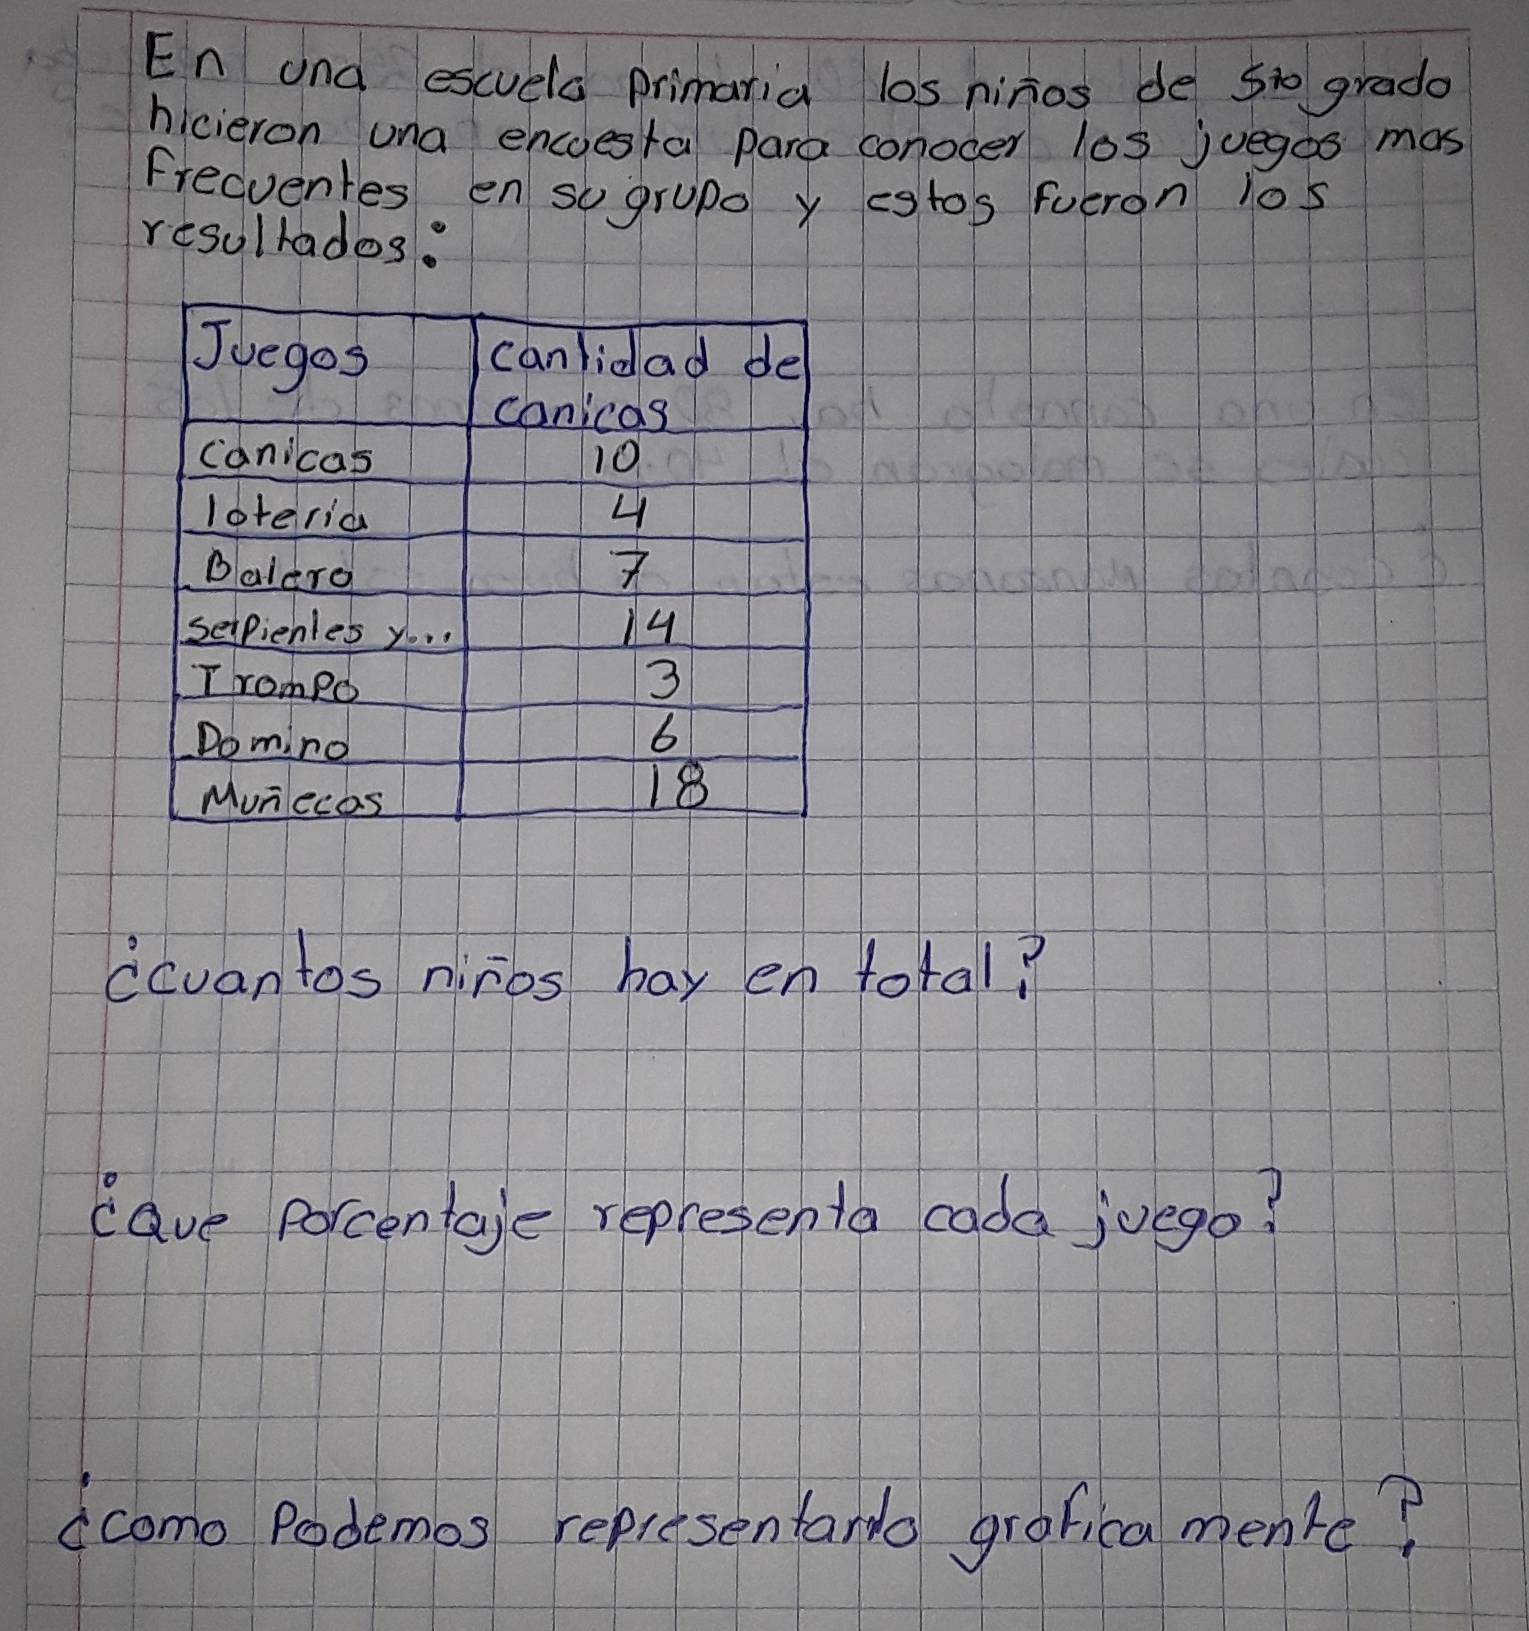 En una escuela primaria los niños de 5to grado
hicieron una encuesta para conocer los juegos mas
frecuentes en su grupo y estos fueron los
resultados:
Juegos cantidad de
canicas
canicas 10
loteria 4
Balero 7
serpientes y... 14
Trompo 3
Domino 6
Muñecas 18
¿cuantos niños hay en total?
¿Que porcentaje representa cada juego?
¿como Podemos representarlo grafica mente?